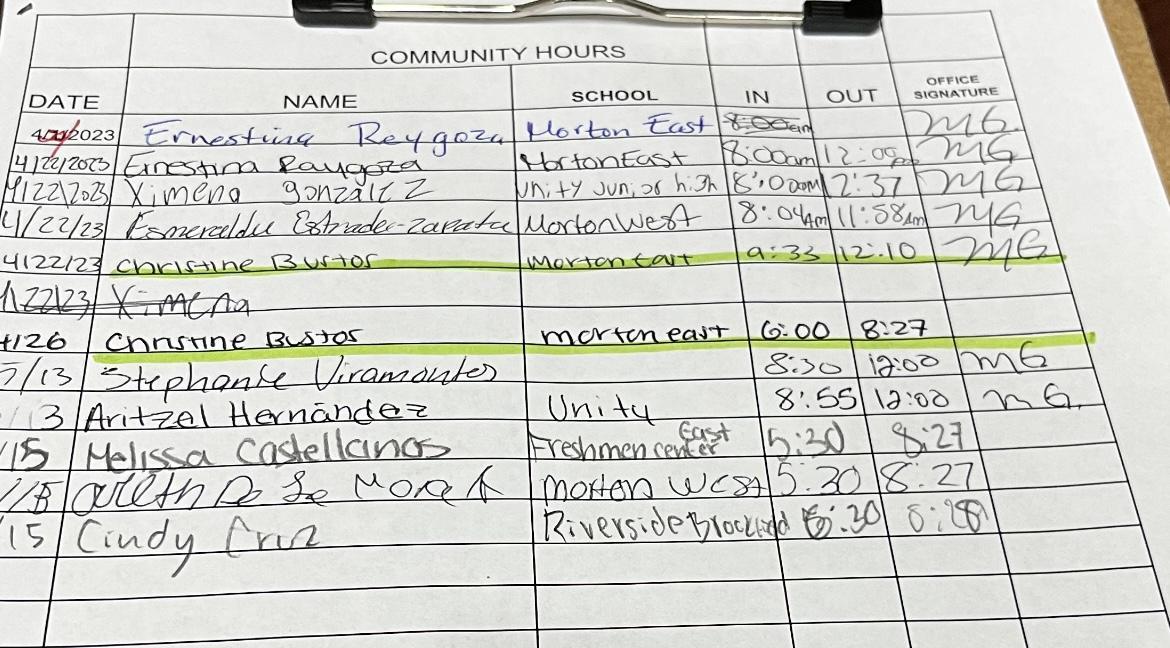 COMMUNITY HOURS
DATE NAME SCHOOL IN OUT OFFICE SIGNATURE
2023 Ernestina Reygoza Morton East 8:00am MG
4/22/2023 Ernestina Raygoza Morton East 8:00am 12:00pm MG
4/22/2023 Ximena gonzalez Unity Junior high 8:00am 12:37 MG
4/22/23 Estrada-zarata Morton West 8:04Am 11:58Am MG
4/22/23 Christine Bustos Morton East 9:33 12:10 MG
/22/23 Ximena
4/26 Christine Bustos morton east 6:00 8:27
/13 Stephanie Viramontes 8:30 12:00 MG
13 Aritzel Hernández Unity 8:55 12:00 MG
/15 Melissa Castellanos Freshmen center East 5:30 8:27
Morton West 5:30 8:27
15 Cindy Cruz Riverside :30